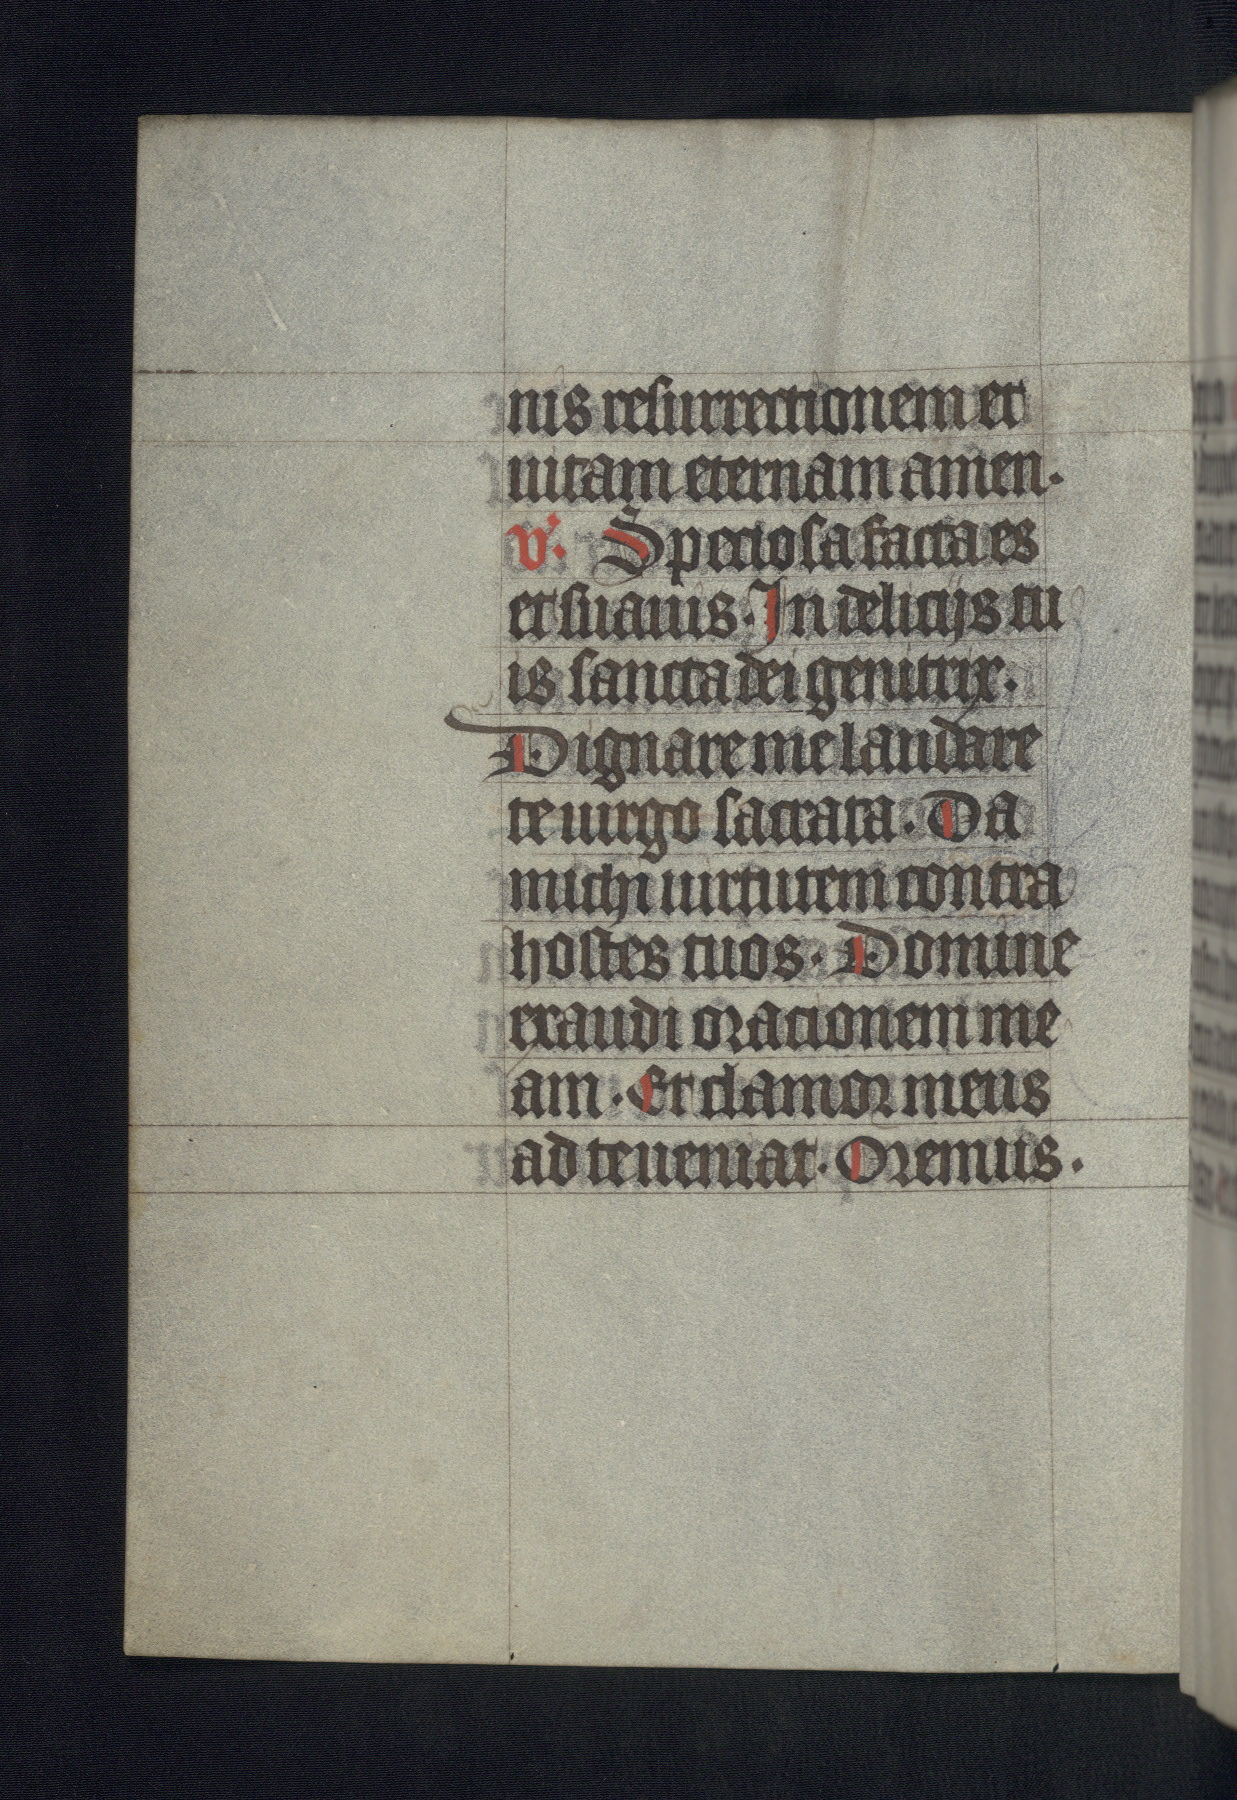 nis resurrectionem et
uitam eternam amen.
v. Speciosa facta es
et suauis. In delicijs tu
is sancta dei genitrix.
Dignare me laudare
te uirgo sacrata. Da
michi uirtutem contra
hostes tuos. Domine
exaudi oracionem me
am. Et clamor meus
ad te ueniat. Oremus.